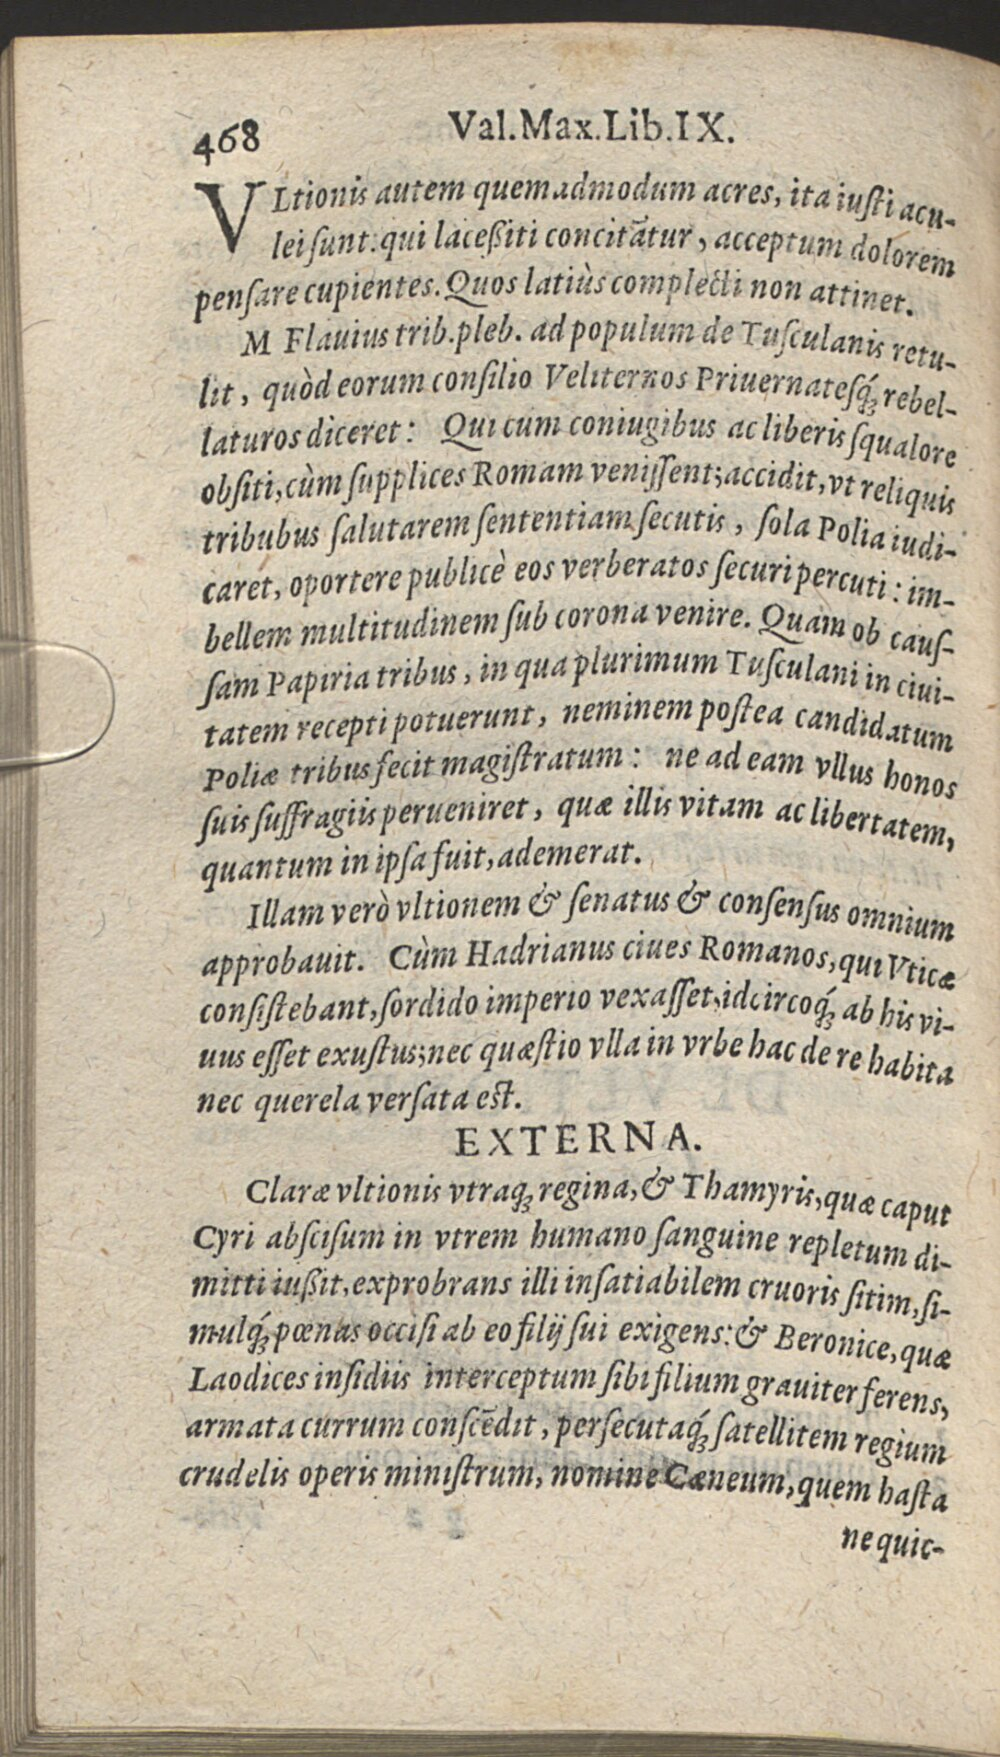 468 Val.Max.Lib.IX.
VLtionis autem quemadmodum acres, ita iuſti acu-
lei ſunt: qui laceßiti concitãtur, acceptum dolorem
penſare cupientes. Quos latiùs complecti non attinet.
M Flauius trib.pleb. ad populum de Tuſculanis retu-
lit, quòd eorum conſilio Veliternos Priuernateſq́; rebel-
laturos diceret: Qui cum coniugibus ac liberis ſqualore
obſiti, cùm ſupplices Romam veniſſent; accidit, vt reliquis
tribubus ſalutarem ſententiam ſecutis, ſola Polia iudi-
caret, oportere publicè eos verberatos ſecuri percuti: im-
bellem multitudinem ſub corona venire. Quam ob cauſ-
ſam Papiria tribus, in qua plurimum Tuſculani in ciui-
tatem recepti potuerunt, neminem poſtea candidatum
Poliæ tribus fecit magiſtratum: ne ad eam vllus honos
ſuis ſuffragiis perueniret, quæ illis vitam ac libertatem,
quantum in ipſa fuit, ademerat.
Illam verò vltionem & ſenatus & conſenſus omnium
approbauit. Cùm Hadrianus ciues Romanos, qui Vticæ
conſiſtebant, ſordido imperio vexaſſet, idcircoq́; ab his vi-
uus eſſet exuſtus; nec quæſtio vlla in vrbe hac de re habita
nec querela verſata eſt.
EXTERNA.
Claræ vltionis vtraq; regina, & Thamyris, quæ caput
Cyri abſciſum in vtrem humano ſanguine repletum di-
mitti iußit, exprobrans illi inſatiabilem cruoris ſitim, ſi-
mulq́; pœnas occiſi ab eo filij ſui exigens: & Beronice, quæ
Laodices inſidiis interceptum ſibi filium grauiter ferens,
armata currum conſcẽdit, perſecutaq́; ſatellitem regium
crudelis operis miniſtrum, nomine Cæneum, quem haſta
ne quic-